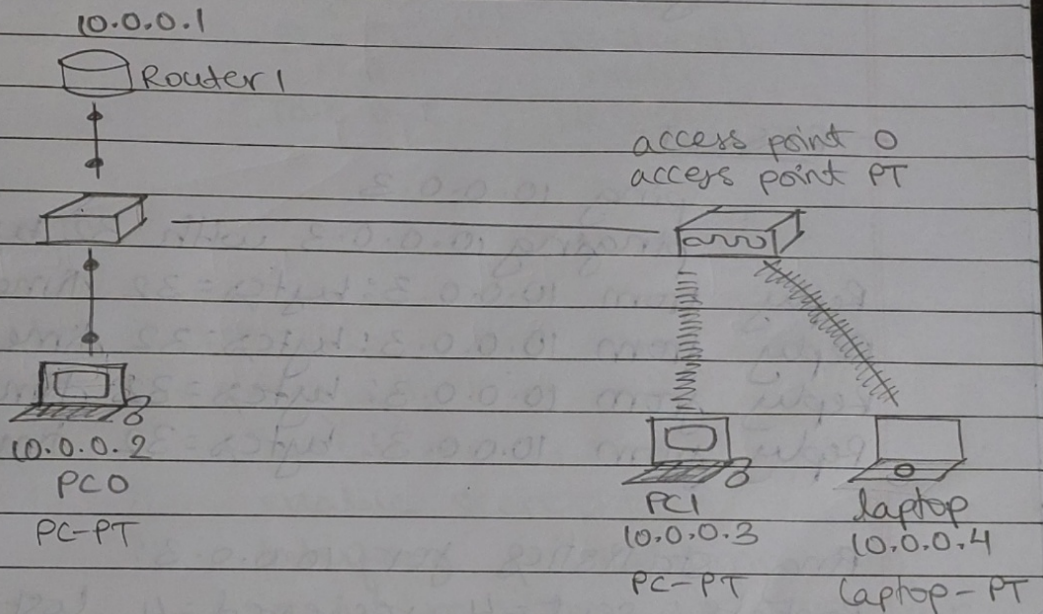 10.0.0.1
Router1
access point 0
access point PT
10.0.0.2
PC0
PC-PT
PC1
10.0.0.3
PC-PT
laptop
10.0.0.4
laptop-PT